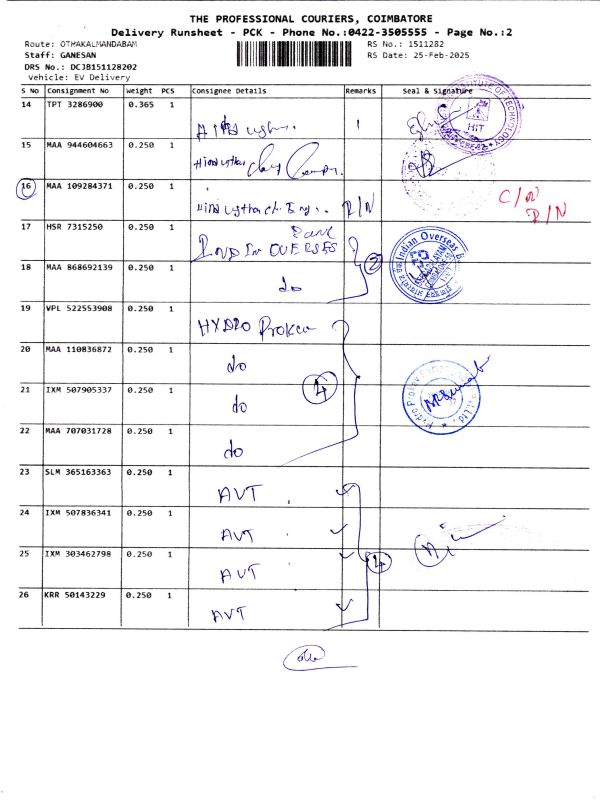 THE PROFESSIONAL COURIERS, COIMBATORE
Delivery Runsheet - PCK - Phone No.:0422-3505555 - Page No.:2
Route: OTHAKALMANDABAM
RS No.: 1511282
Staff: GANESAN
RS Date: 25-Feb-2025
DRS No.: DCJB151128202
Vehicle: EV Delivery
S No Consignment No Weight PCS Consignee Details Remarks Seal & Signature
14 TPT 3286900 0.365 1
INSTITUTE OF TECHNOLOGY
HIT
15 MAA 944604663 0.250 1
16 MAA 109284371 0.250 1 D/N
D/N
17 HSR 7315250 0.250 1
Bank
OVERSES
Indian Overseas
2
18 MAA 868692139 0.250 1 do
19 VPL 522553908 0.250 1 HYDRO
20 MAA 110836872 0.250 1 do
4
21 IXM 507905337 0.250 1 do
22 MAA 707031728 0.250 1 do
23 SLM 365163363 0.250 1 AVT
24 IXM 507836341 0.250 1 AVT
4
25 IXM 303462798 0.250 1 AVT
26 KRR 50143229 0.250 1 AVT